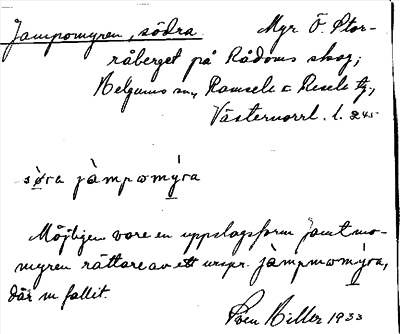 Jampomyren, södra. Myr Ö. Stor-
råberget på Rådoms skog;
Helgums sn., Ramsele o Resele tg.,
Västernorrl. l. 245
sø̀ra jàmpωmýra
Möjligen vore en uppslagsform Jamtmo-
myren rättare av ett urspr. jàmpmωmýra,
där m fallit.
Sven Hiller 1933